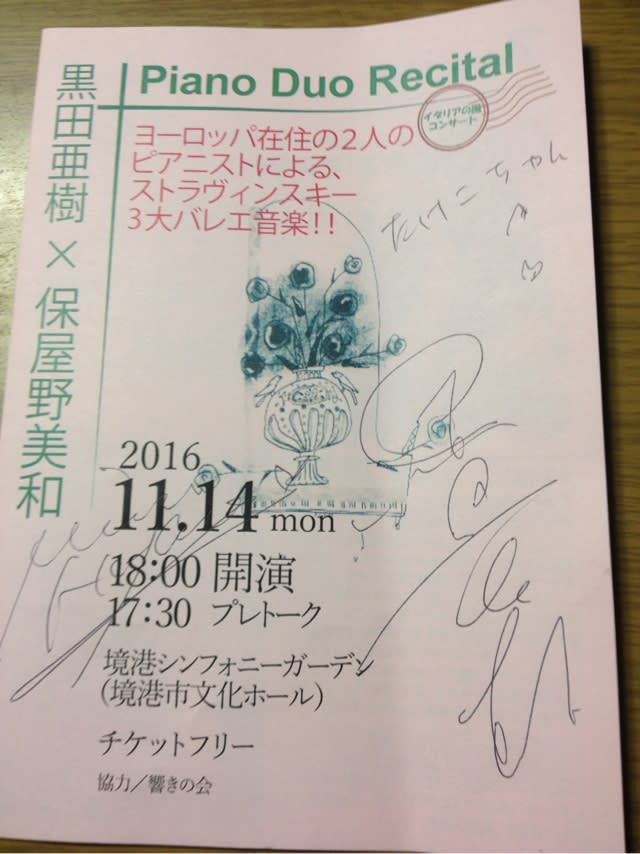 黒田亜樹 × 保屋野美和
Piano Duo Recital
イタリアの風
コンサート
ヨーロッパ在住の2人の
ピアニストによる、
ストラヴィンスキー
3大バレエ音楽!!
たけこちゃん
2016
11.14 mon
18:00 開演
17:30 プレトーク
境港シンフォニーガーデン
(境港市文化ホール)
チケットフリー
協力/響きの会